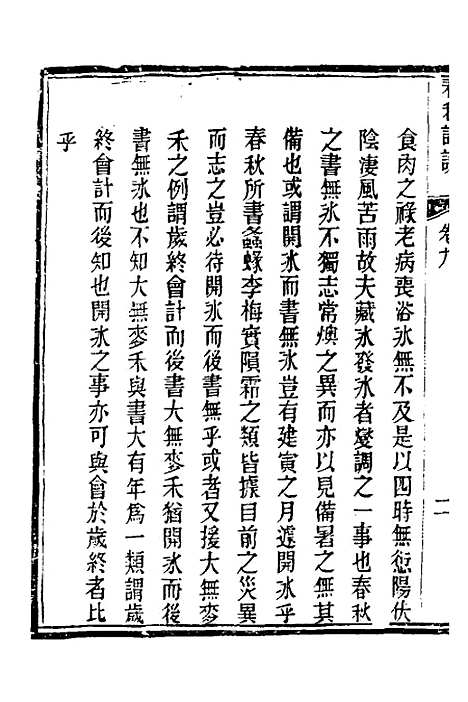 食肉之祿老病喪浴氷無不及是以四時無愆陽伏
陰淒風苦雨故夫藏氷發氷者燮調之一事也春秋
之書無氷不獨志常燠之異而亦以見備暑之無其
備也或謂開氷而書無氷豈有建寅之月遽開氷乎
春秋所書螽蝝李梅實隕霜之類皆據目前之災異
而志之豈必待開氷而後書無乎或者又援大無麥
禾之例謂歲終會計而後書大無麥禾猶開氷而後
書無氷也不知大無麥禾與書大有年爲一類謂歲
終會計而後知也開氷之事亦可與會於歲終者比
乎
卷九
二